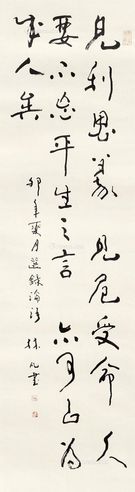 見利思義見危受命久
要不忘平生之言亦可以為
成人矣
卯年夏月選錄論語林凡書